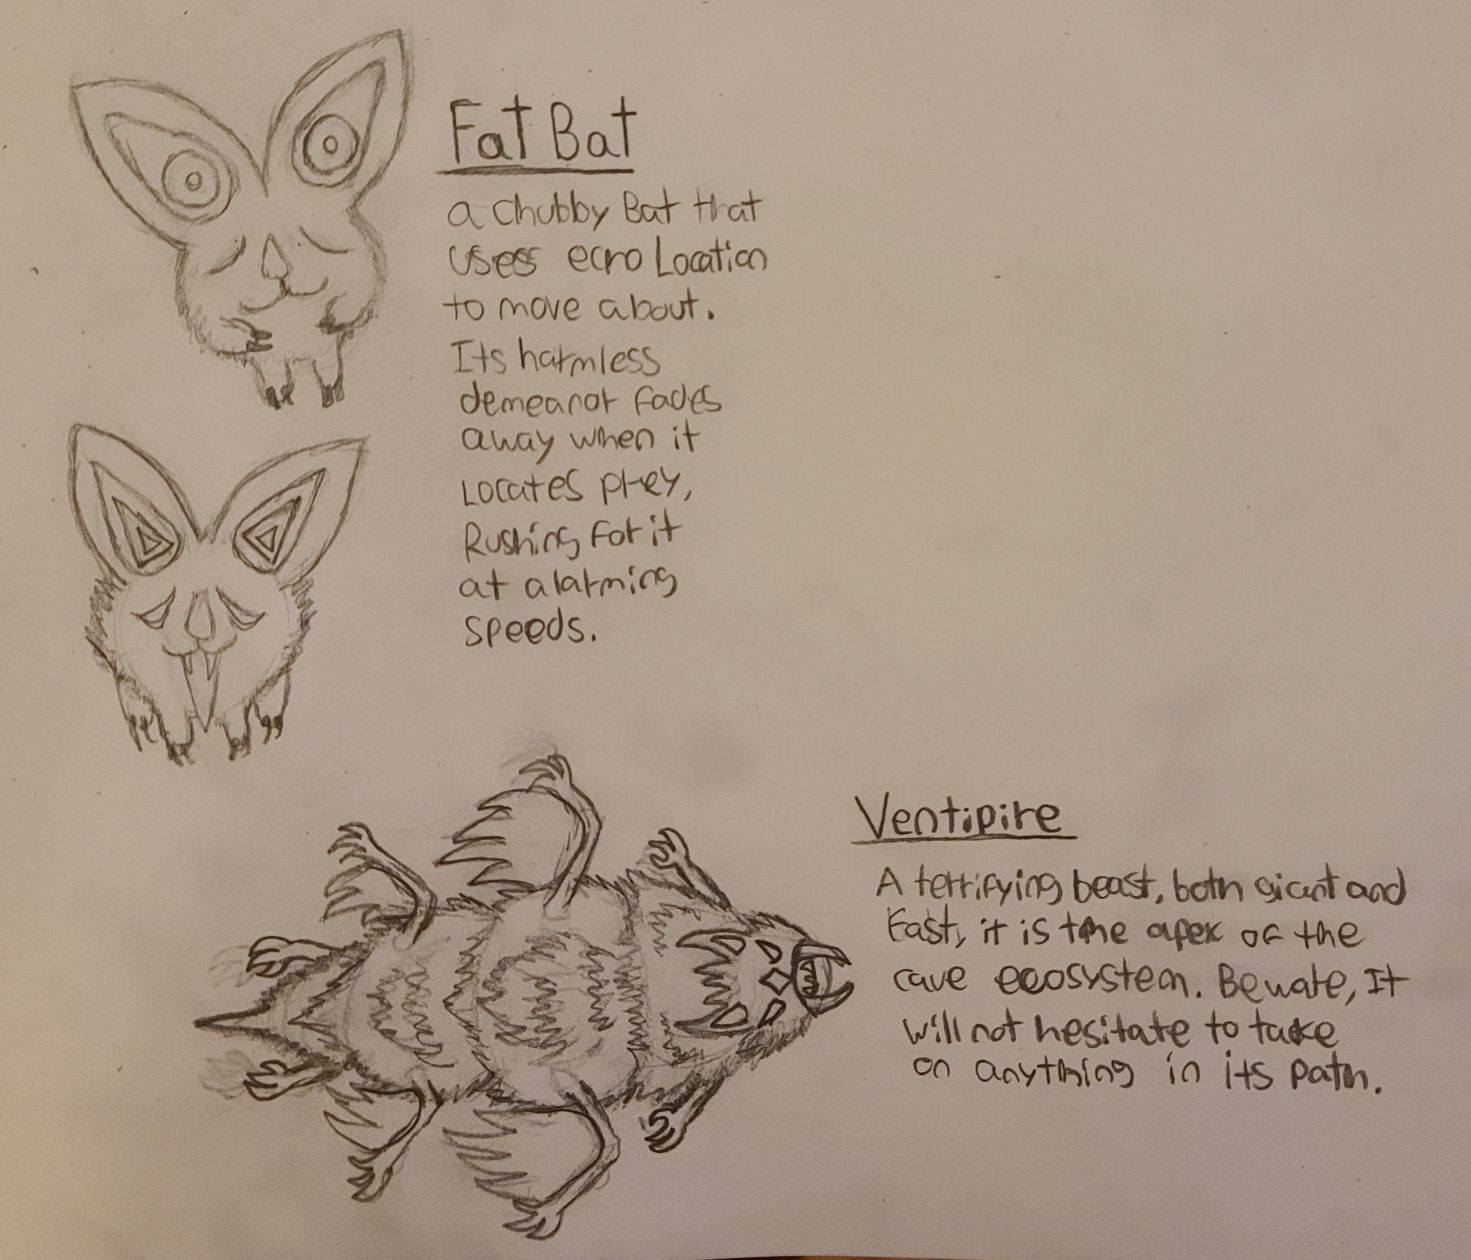 Fat Bat
a chubby Bat that
uses ecro Location
to move about.
Its harmless
demeanor fades
away when it
Locates prey,
Rushing for it
at alarming
speeds.
Ventipire
A terrifying beast, both giant and
fast, it is the apex of the
cave ecosystem. Beware, It
will not hesitate to take
on anything in its path.